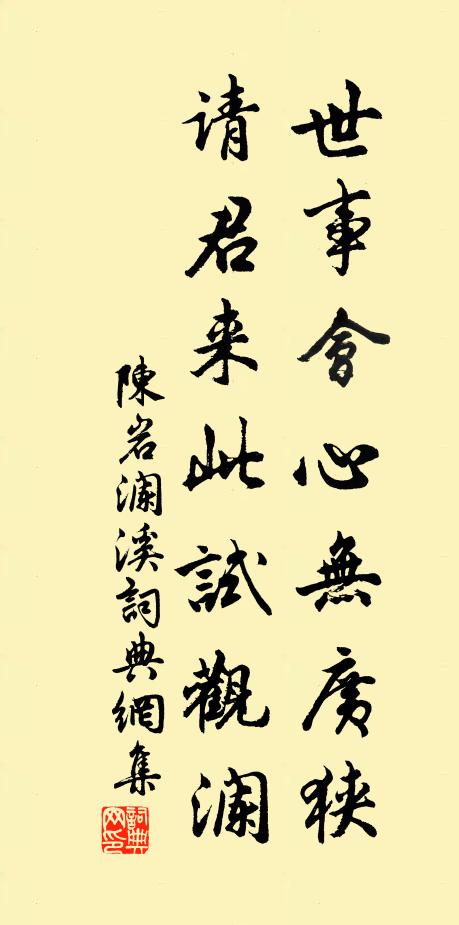 世事會心無廣狹
请君来此試觀澜
陳岩澜溪詞典網集
詞典网印